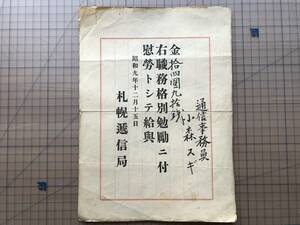 通信事務員
小森スギ
金拾四圓九拾錢
右職務格別勉勵ニ付
慰勞トシテ給與
昭和九年十二月十五日
札幌遞信局